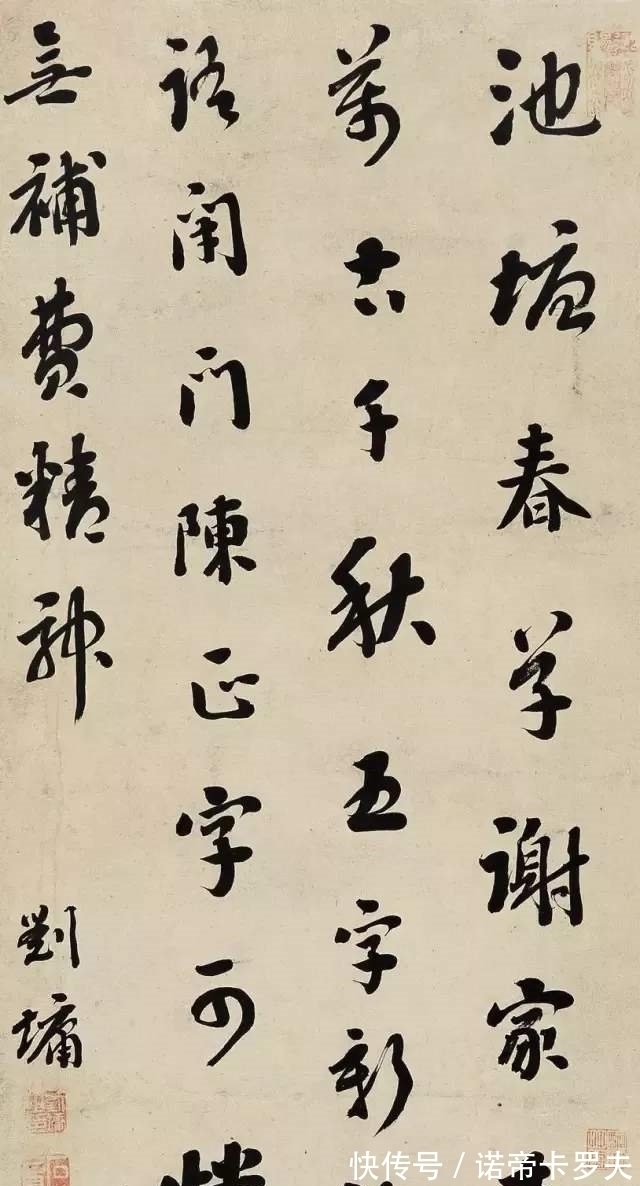 池塘春草謝家
萬古千秋五字新
語閉門陳正字可
無補費精神
劉墉
快传号／诺帝卡罗夫